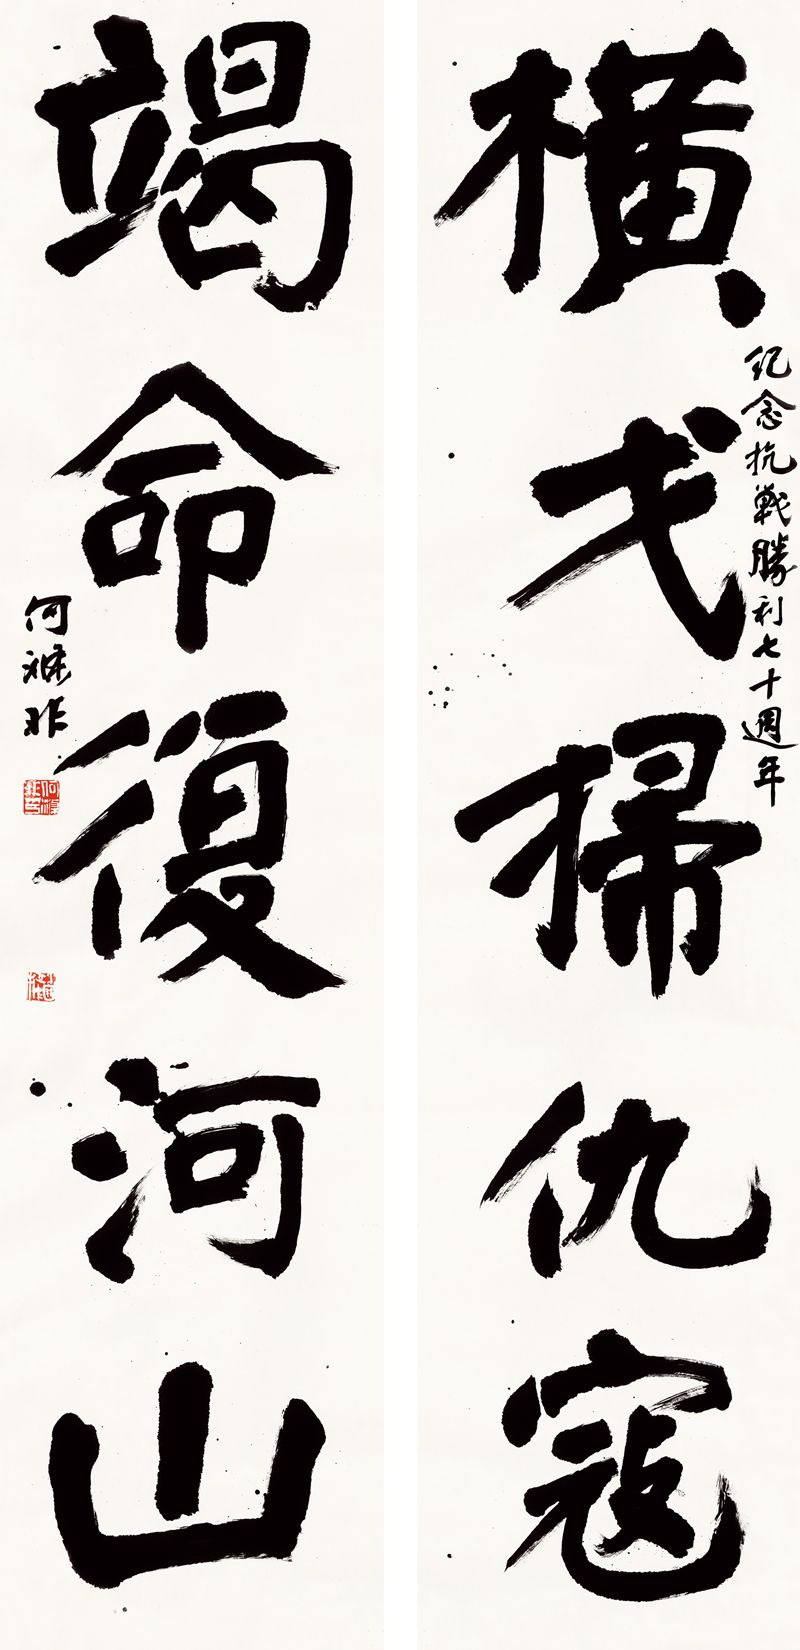 橫戈掃仇寇
紀念抗戰勝利七十週年
竭命復河山
何